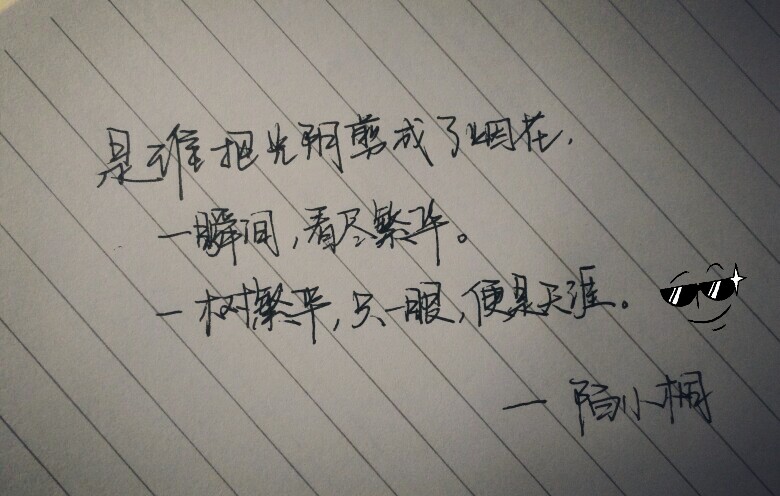 是谁把光阴剪成了烟花,
一瞬间,看尽繁华。
一树繁华,只一眼,便是天涯。
一 陌小桐